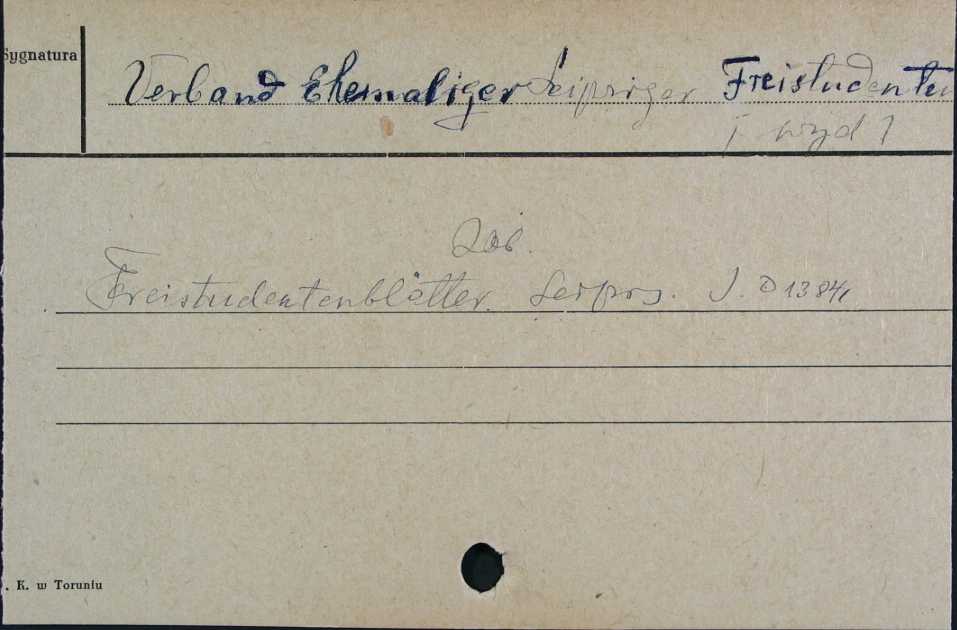 Sygnatura
Verband Ehemaliger Leipziger Freistudenten
[wyd]
Zob.
Freistudentenblätter. J. D 1384,
. K. w Toruniu